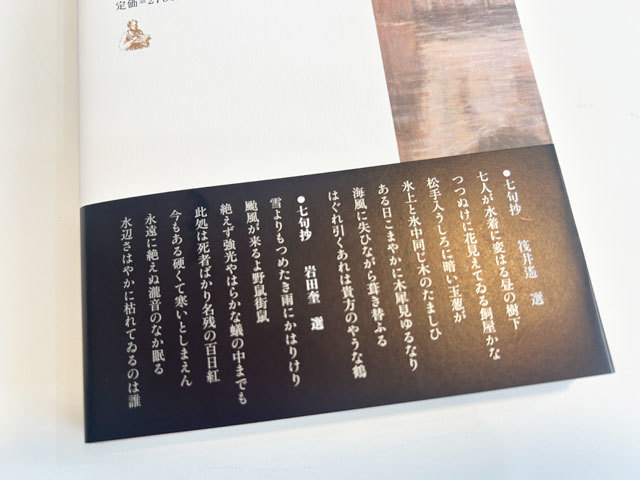 定価=27
●七句抄　筏井遙　選
七人が水着に変はる昼の樹下
つつぬけに花見えてゐる飼屋かな
松手入うしろに暗い玉葱が
氷上と氷中同じ木のたましひ
ある日こまやかに木犀見ゆるなり
海風に失ひながら葺き替ふる
はぐれ引くあれは貴方のやうな鶴
●七句抄　岩田奎　選
雪よりもつめたき雨にかはりけり
颱風が来るよ野鼠街鼠
絶えず強光やはらかな蟻の中までも
此処は死者ばかり名残の百日紅
今もある硬くて寒いとしまえん
永遠に絶えぬ瀧音のなか眠る
水辺さはやかに枯れてゐるのは誰